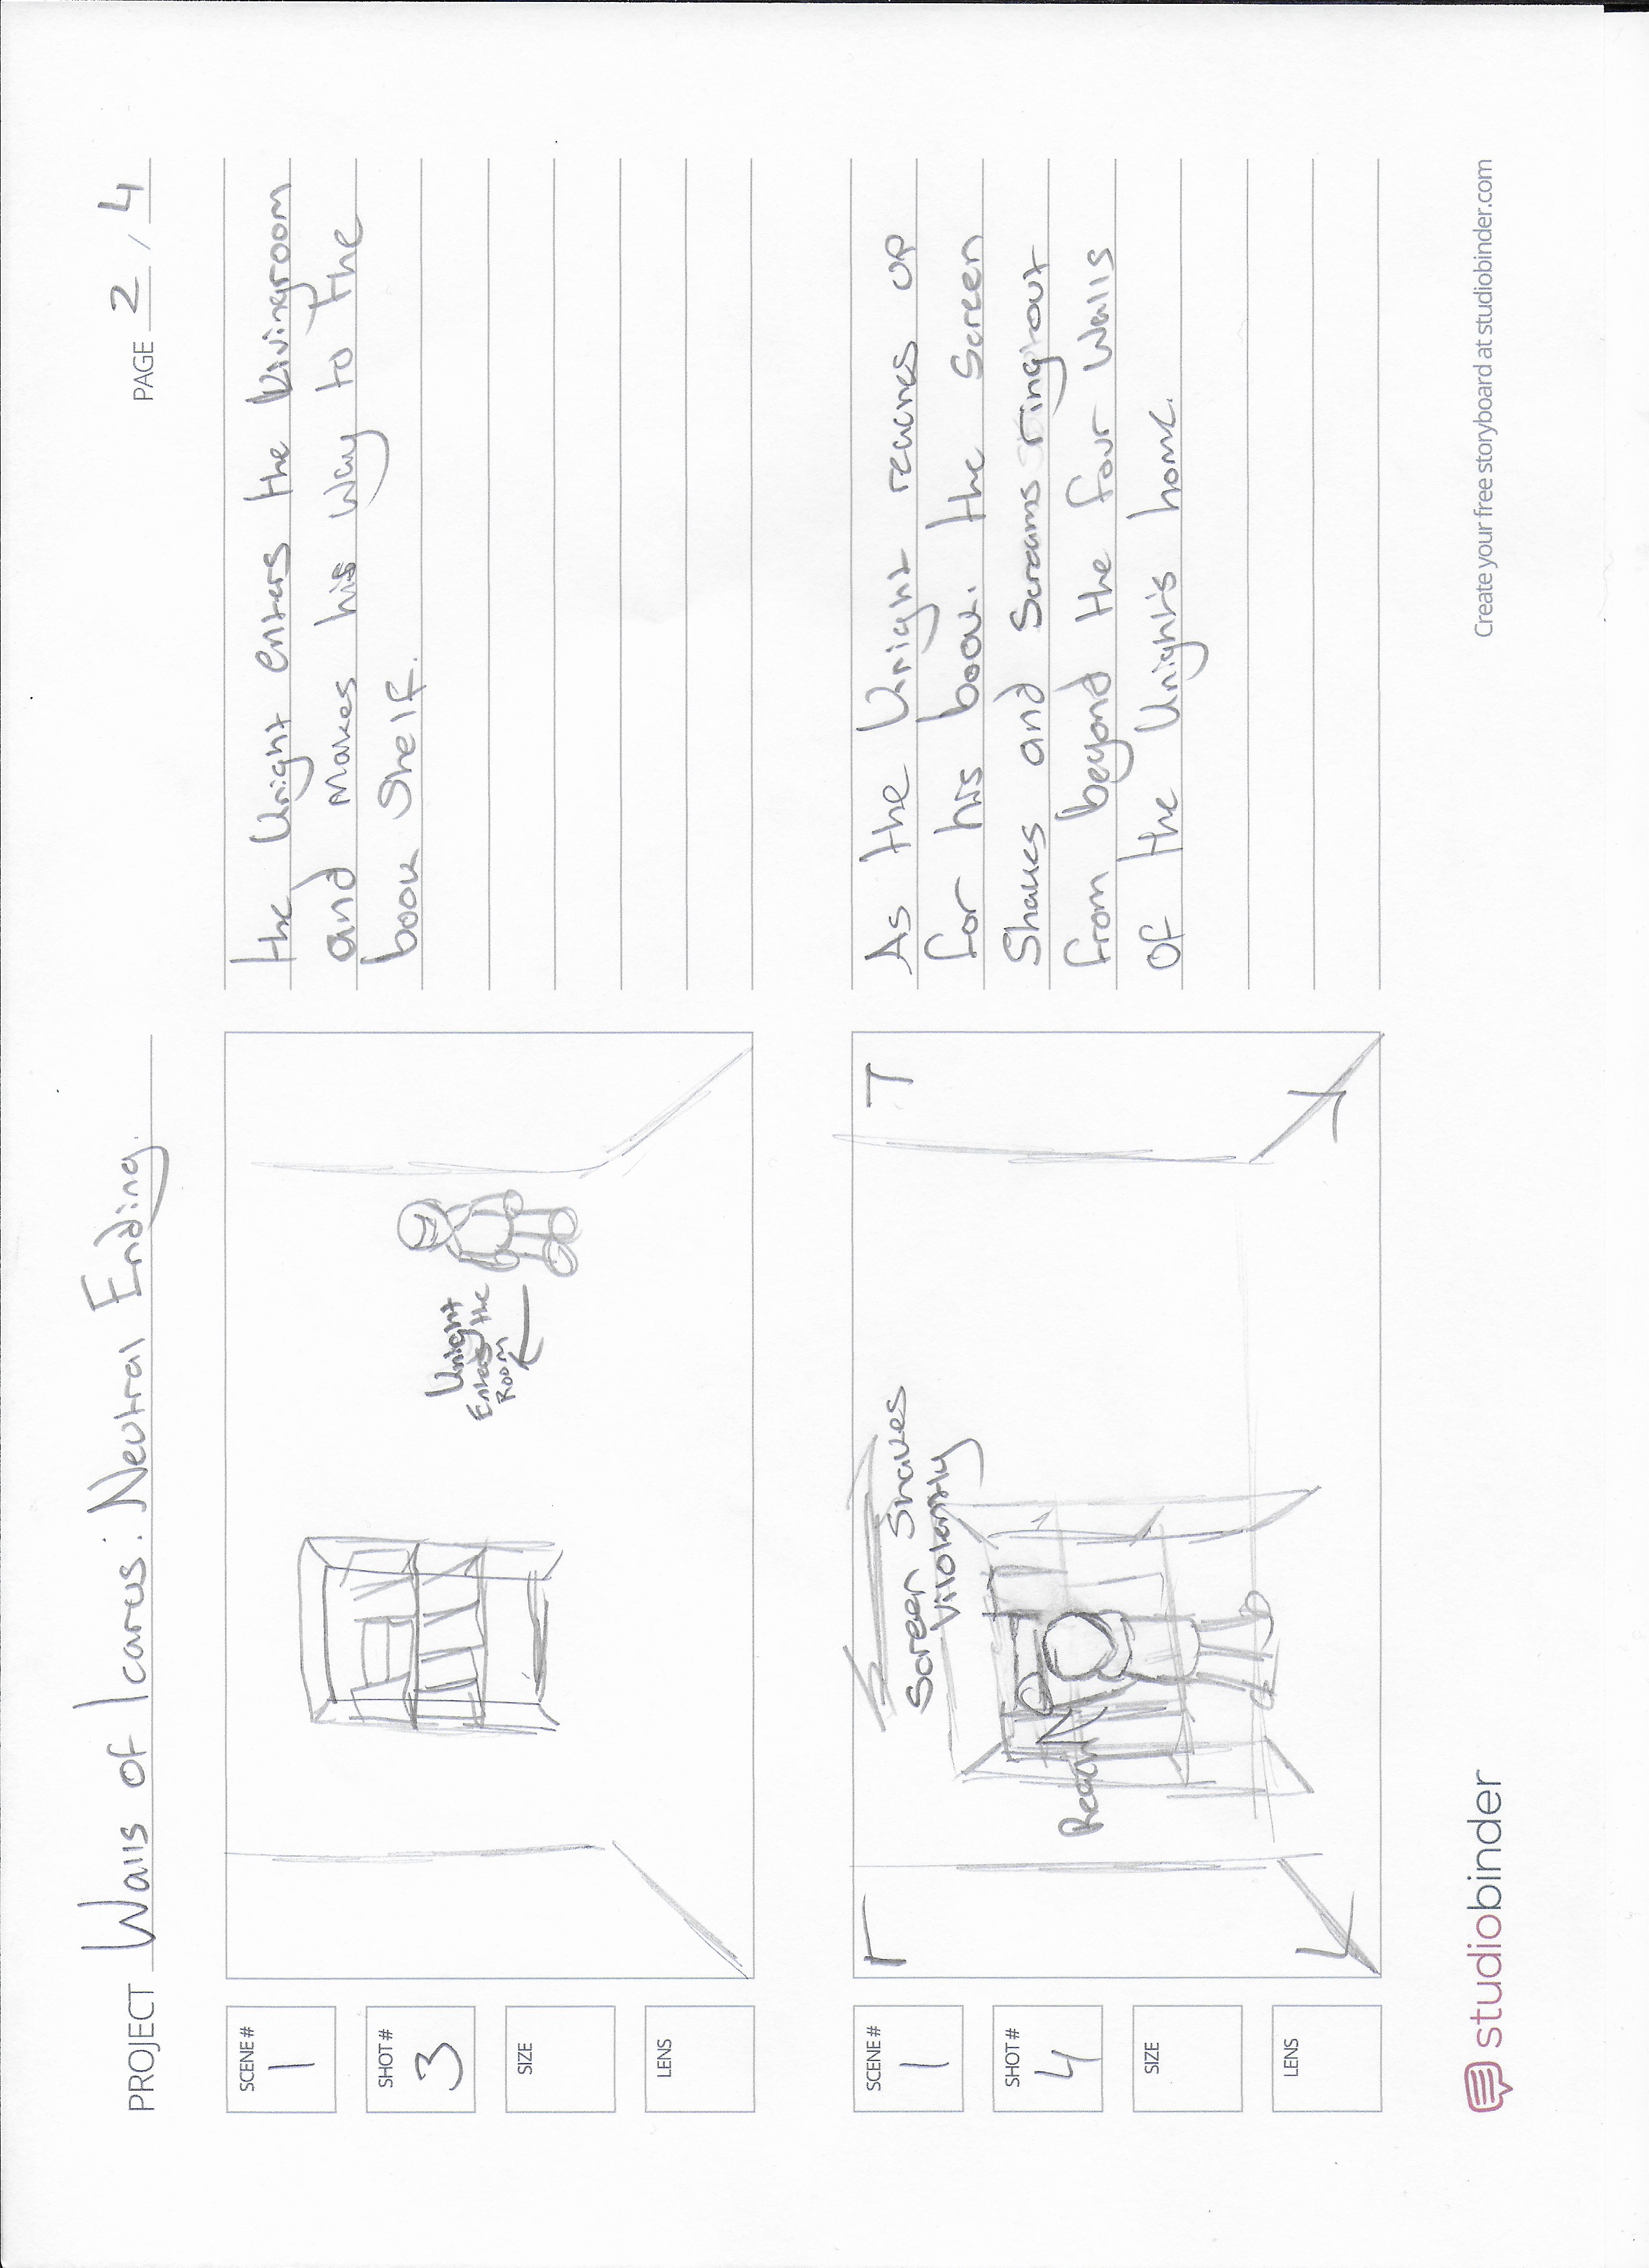 PROJECT Walls of Icarus: Neutral Ending.
PAGE 2 / 4
SCENE # 1
SHOT # 3
SIZE
LENS
Knight
Enters the
Room
the Knight enters the Livingroom
and makes his way to the
book Shelf.
SCENE # 1
SHOT # 4
SIZE
LENS
Screen Shakes
Violently
Reach
As the Knight reaches up
for his book. the Screen
Shakes and Screams ring out
from beyond the four walls
of the Knight's home.
studiobinder
Create your free storyboard at studiobinder.com